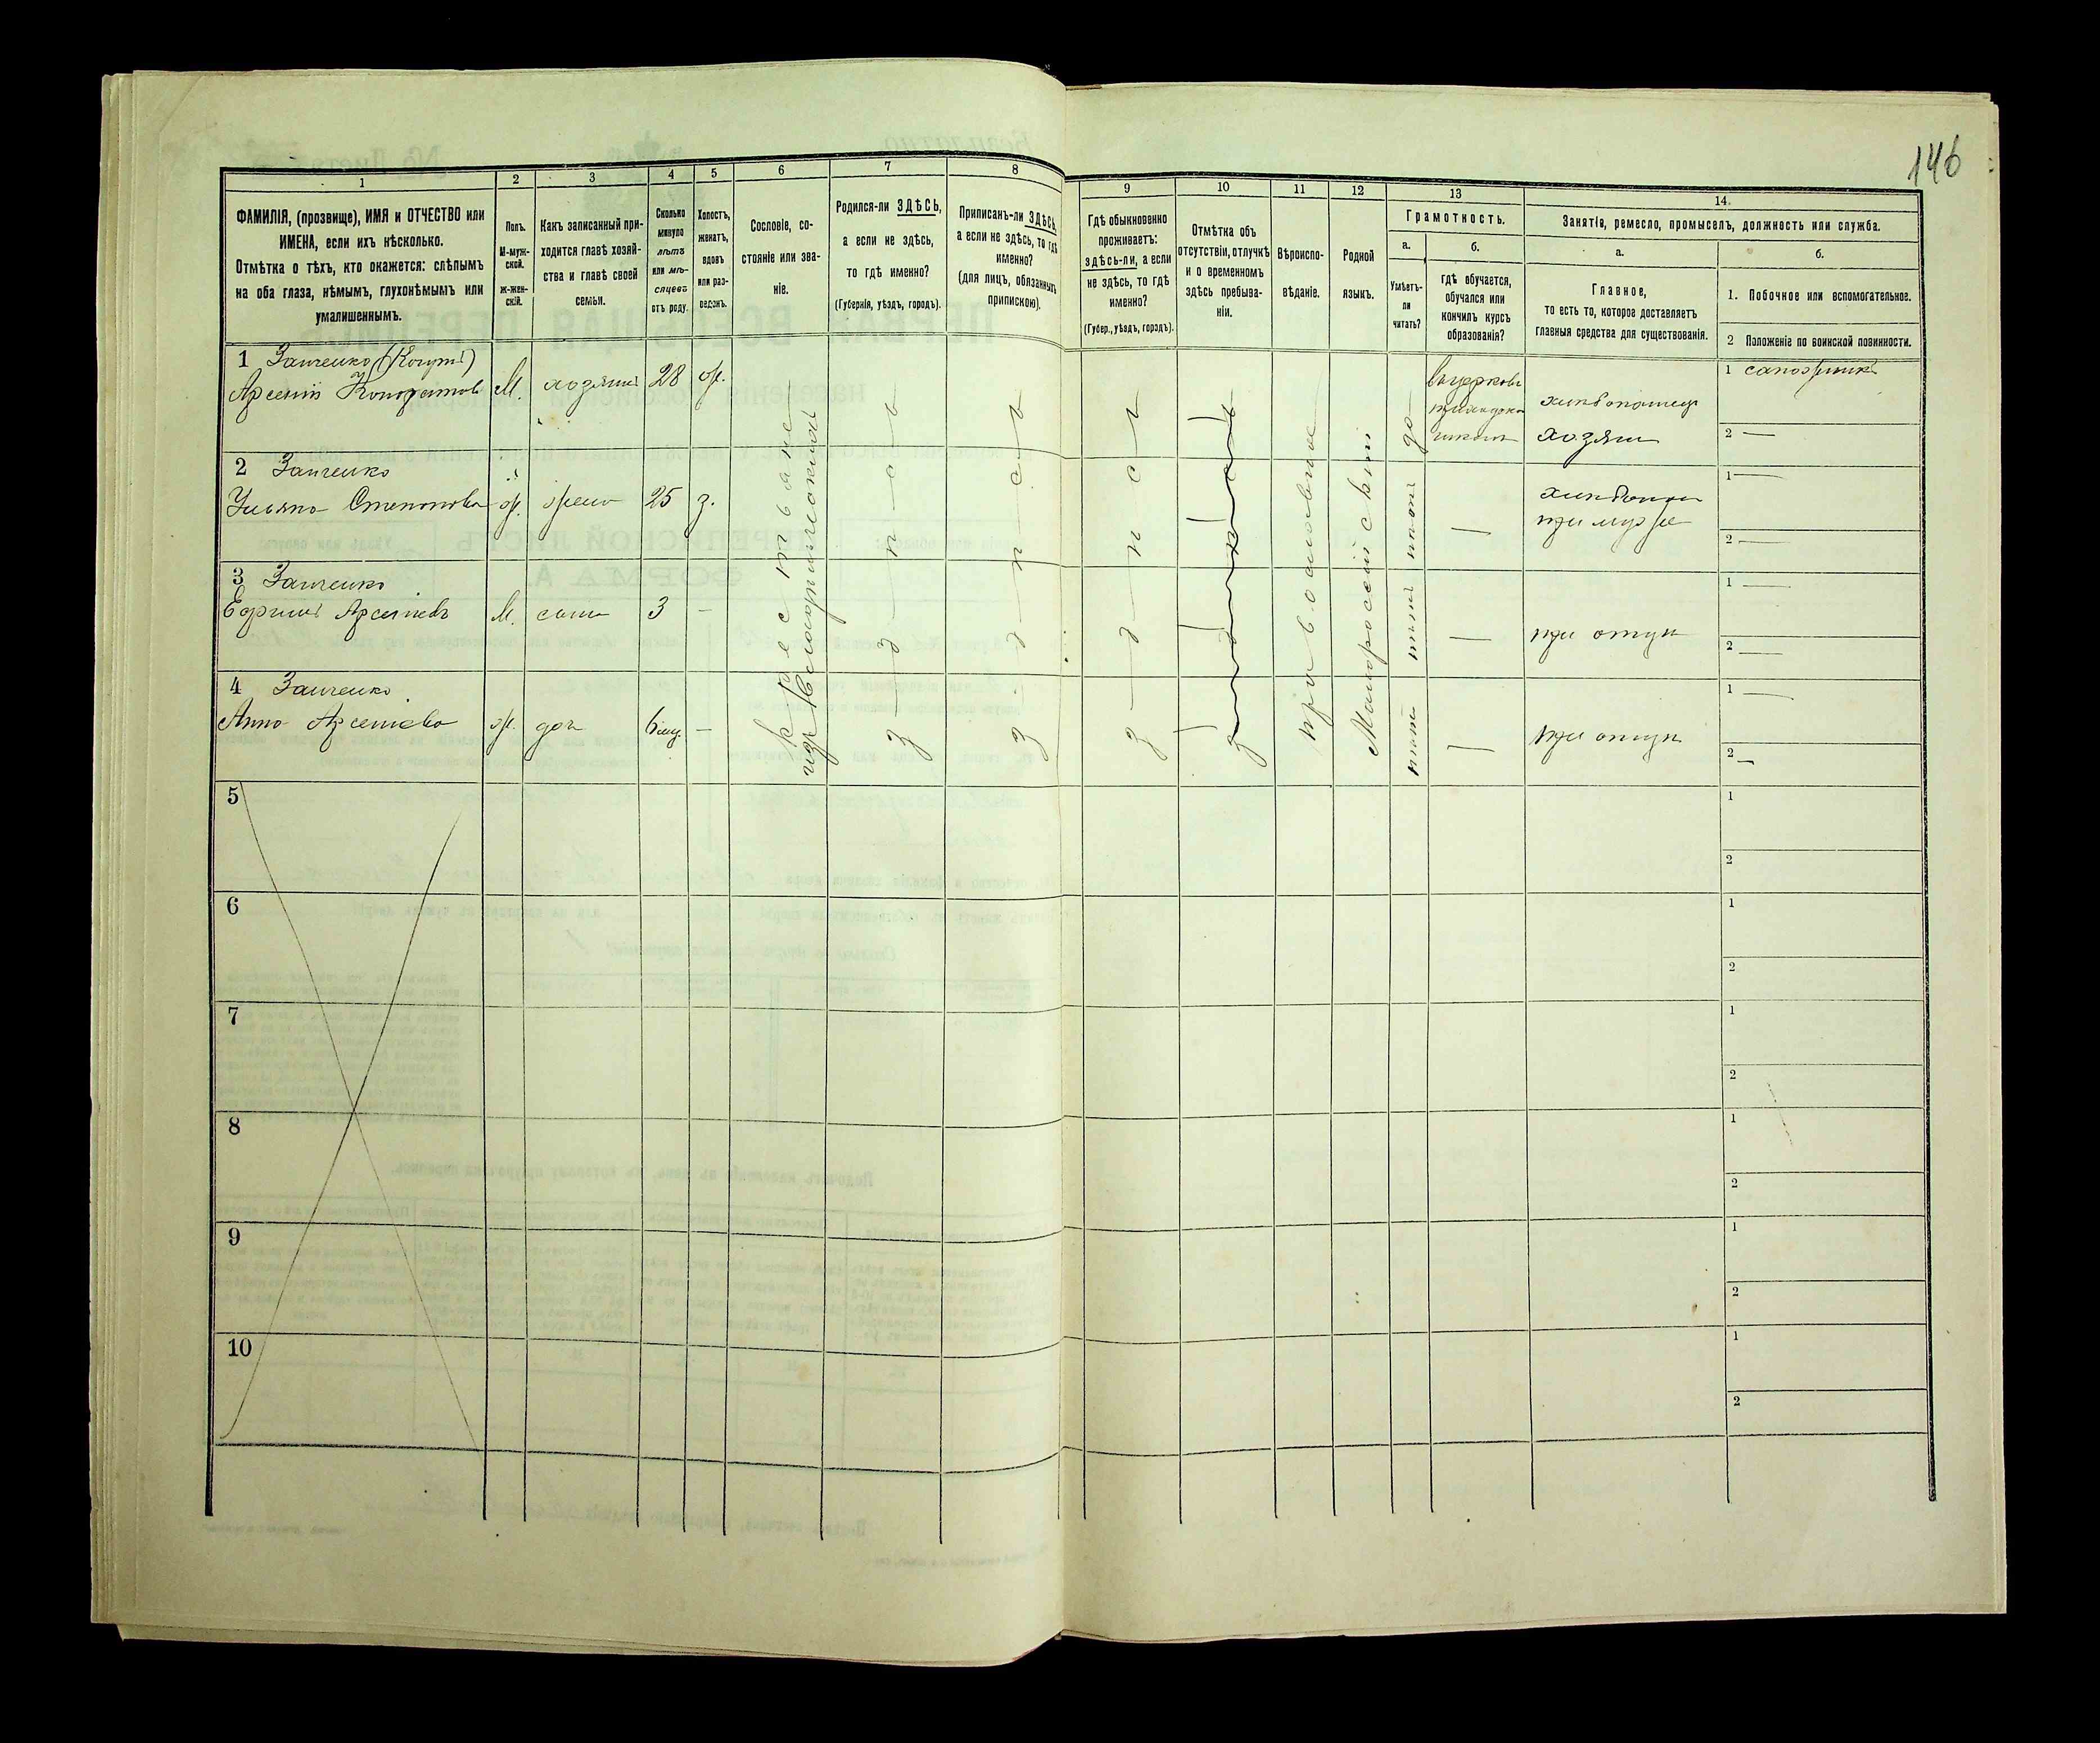 146
1
ФАМИЛІЯ, (прозвище), ИМЯ и ОТЧЕСТВО или
ИМЕНА, если ихъ нѣсколько.
Отмѣтка о тѣхъ, кто окажется: слѣпымъ
на оба глаза, нѣмымъ, глухонѣмымъ или
умалишеннымъ.
2
Полъ.
М-муж-
ской.
Ж-жен-
скій.
3
Какъ записанный при-
ходится главѣ хозяй-
ства и главѣ своей
семьи.
4
Сколько
минуло
лѣтъ
или мѣ-
сяцевъ
отъ роду.
5
Холостъ,
женатъ,
вдовъ
или раз-
веденъ.
6
Сословіе, со-
стояніе или зва-
ніе.
7
Родился-ли ЗДѢСЬ,
а если не здѣсь,
то гдѣ именно?
(Губернія, уѣздъ, городъ).
8
Приписанъ-ли ЗДѢСЬ,
а если не здѣсь, то гдѣ
именно?
(для лицъ, обязанныхъ
припискою).
9
Гдѣ обыкновенно
проживаетъ:
здѣсь-ли, а если
не здѣсь, то гдѣ
именно?
(Губер., уѣздъ, городъ).
10
Отмѣтка объ
отсутствіи, отлучкѣ
и о временномъ
здѣсь пребыва-
ніи.
11
Вѣроиспо-
вѣданіе.
12
Родной
языкъ.
13
Грамотность.
а.
Умѣетъ-
ли
читать?
б.
гдѣ обучается,
обучался или
кончилъ курсъ
образованія?
14.
Занятія, ремесло, промыселъ, должность или служба.
а.
Главное,
то есть то, которое доставляетъ
главныя средства для существованія.
б.
1. Побочное или вспомогательное.
2 Положеніе по воинской повинности.
1 Заиченко
Арсеній М. хозяинъ 28 ж.
да
школѣ
хозяин
1 сапожникъ
2 —
2 Заиченко
Ульяна Степанова ж. жена 25 з.
—
при мужѣ
1 —
2 —
3 Заиченко
Ефримъ Арсеніевъ М. сынъ 3 —
—
при отцѣ
1 —
2 —
4 Заиченко
Анна Арсеніева ж. доч 6 мц. —
—
при отцѣ
1 —
2 —
здѣсь
здѣсь
здѣсь
православное
Малоросейскій
5
1
2
6
1
2
7
1
2
8
1
2
9
1
2
10
1
2